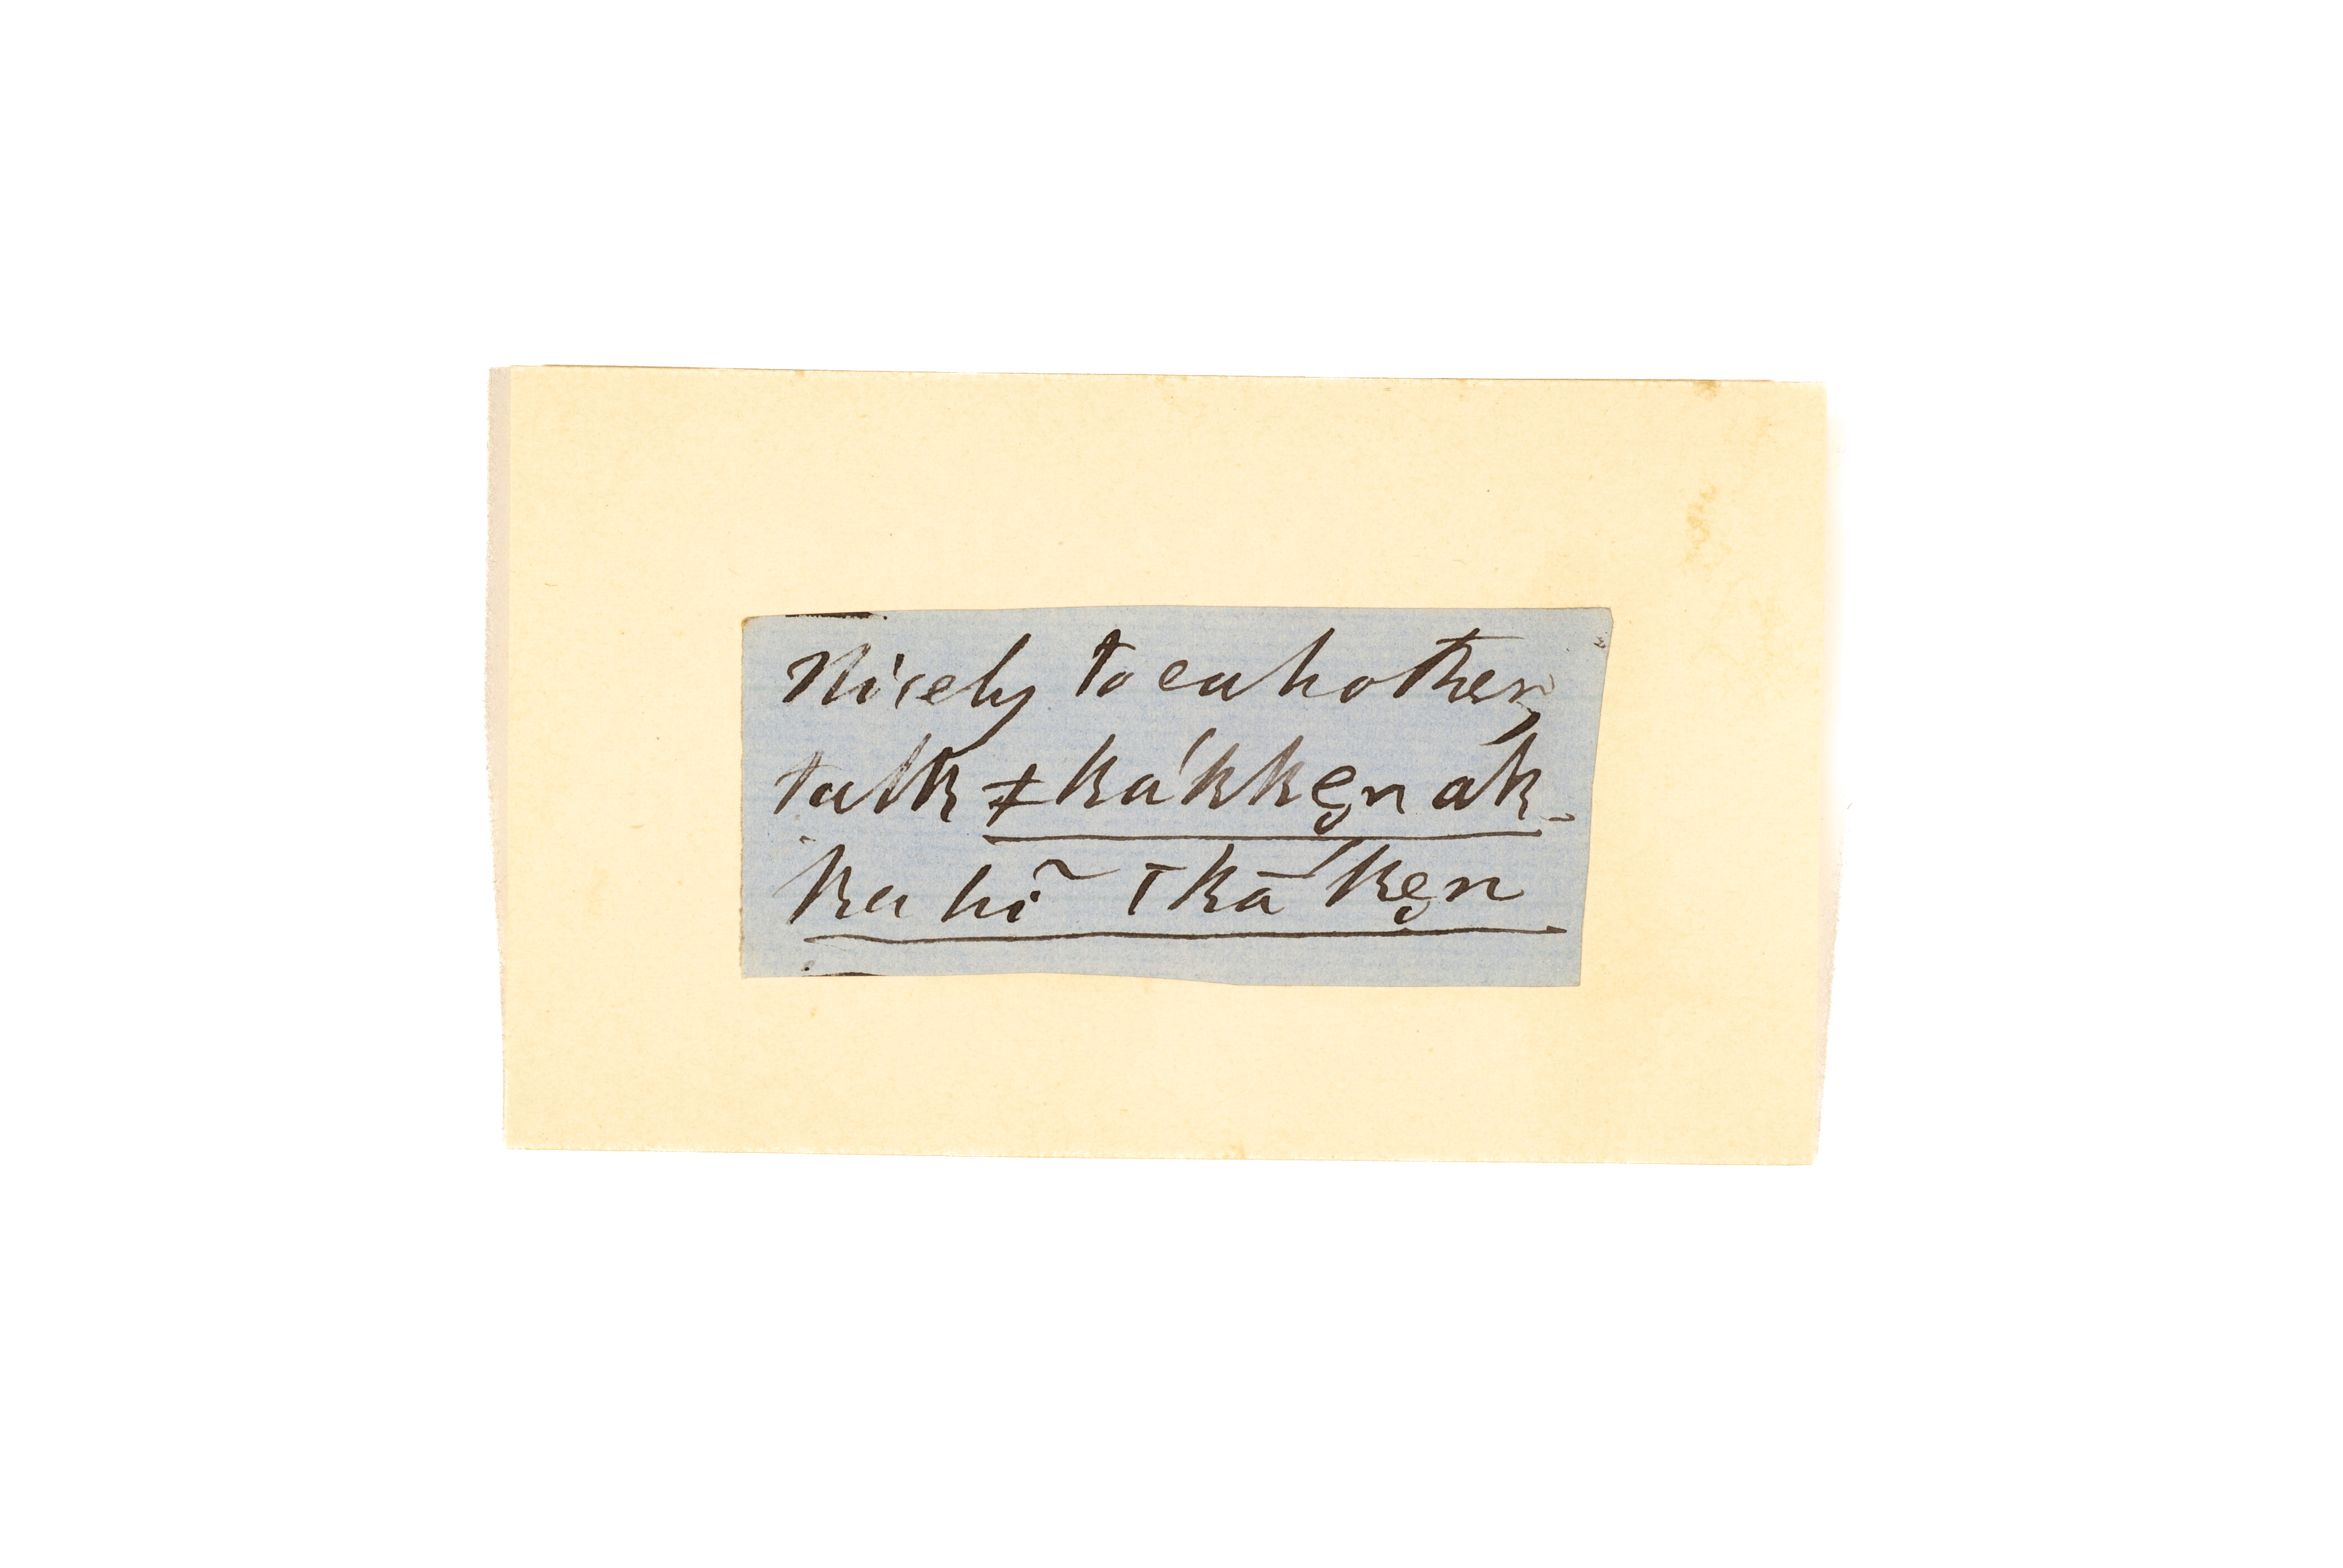 Nicely to eahother
talk ǂkákkẹn ak-
ka hĩ ꞇkā́kẹn